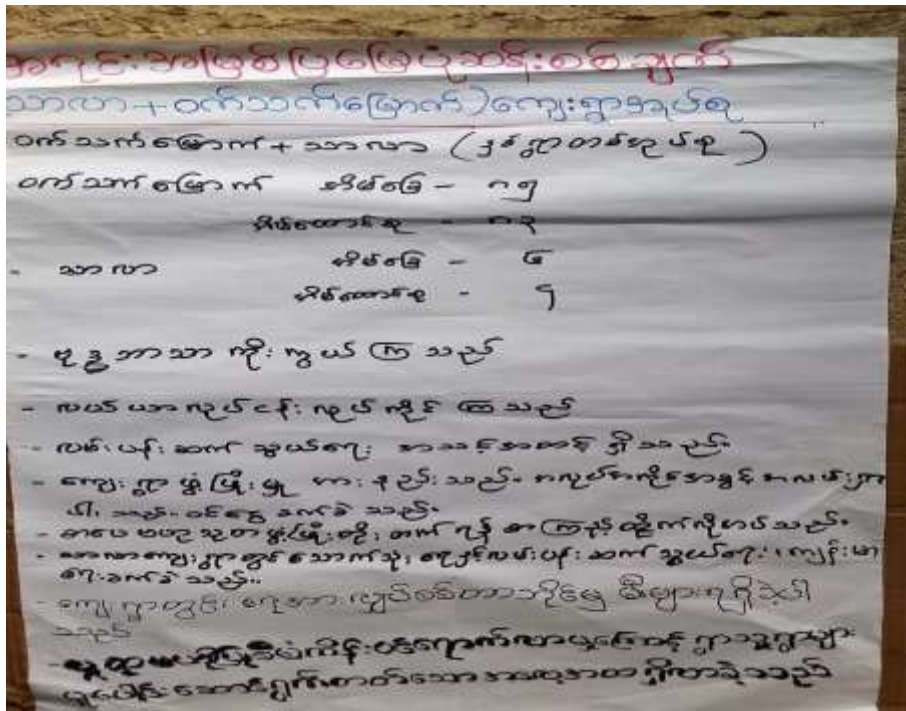 အတိုင်းအဖြစ်ပြမြေပုံဆန်းစစ်ချက်
သာလာ+ဝက်သက်မြောက်)ကျေးရွာအုပ်စု
ဝက်သက်မြောက်+ သာလာ (နှစ်ရွာတစ်အုပ်စု)
ဝက်သက်မြောက် အိမ်ခြေ - ၈၅
အိမ်ထောင်စု - ၈၃
- သာလာ အိမ်ခြေ - ၆
အိမ်ထောင်စု - ၅
- ဗုဒ္ဓဘာသာ ကိုးကွယ်ကြသည်
- လယ်ယာလုပ်ငန်း လုပ်ကိုင်ကြသည်
- လမ်းပန်းဆက်သွယ်ရေး အသင့်အတင့် ရှိသည်။
- ကျေးရွာဖွံ့ဖြိုးမှု အားနည်းသည်။ အလုပ်အကိုင်အခွင့်အလမ်းရှား
ပါးသည်။ ဝင်ငွေ ခက်ခဲသည်။
- စာပေဗဟုသုတဖွံ့ဖြိုးတိုးတက်ရန် စာကြည့်တိုက်လိုအပ်သည်။
- သာလာကျေးရွာတွင် သောက်သုံးရေနှင့်လမ်းပန်းဆက်သွယ်ရေး၊ ကျန်းမာ
ရေးခက်ခဲသည်။
- ကျေးရွာတွင် ရေအားလျှပ်စစ်တာဘိုင်မှ မီးများရရှိခဲ့ပါ
သည်
- လူထုဗဟိုပြုစီမံကိန်းဝင်ရောက်လာမှုကြောင့် ရွာသူရွာသားများ
စုပေါင်းဆောင်ရွက်တတ်သောအလေ့အထ ရှိလာခဲ့သည်